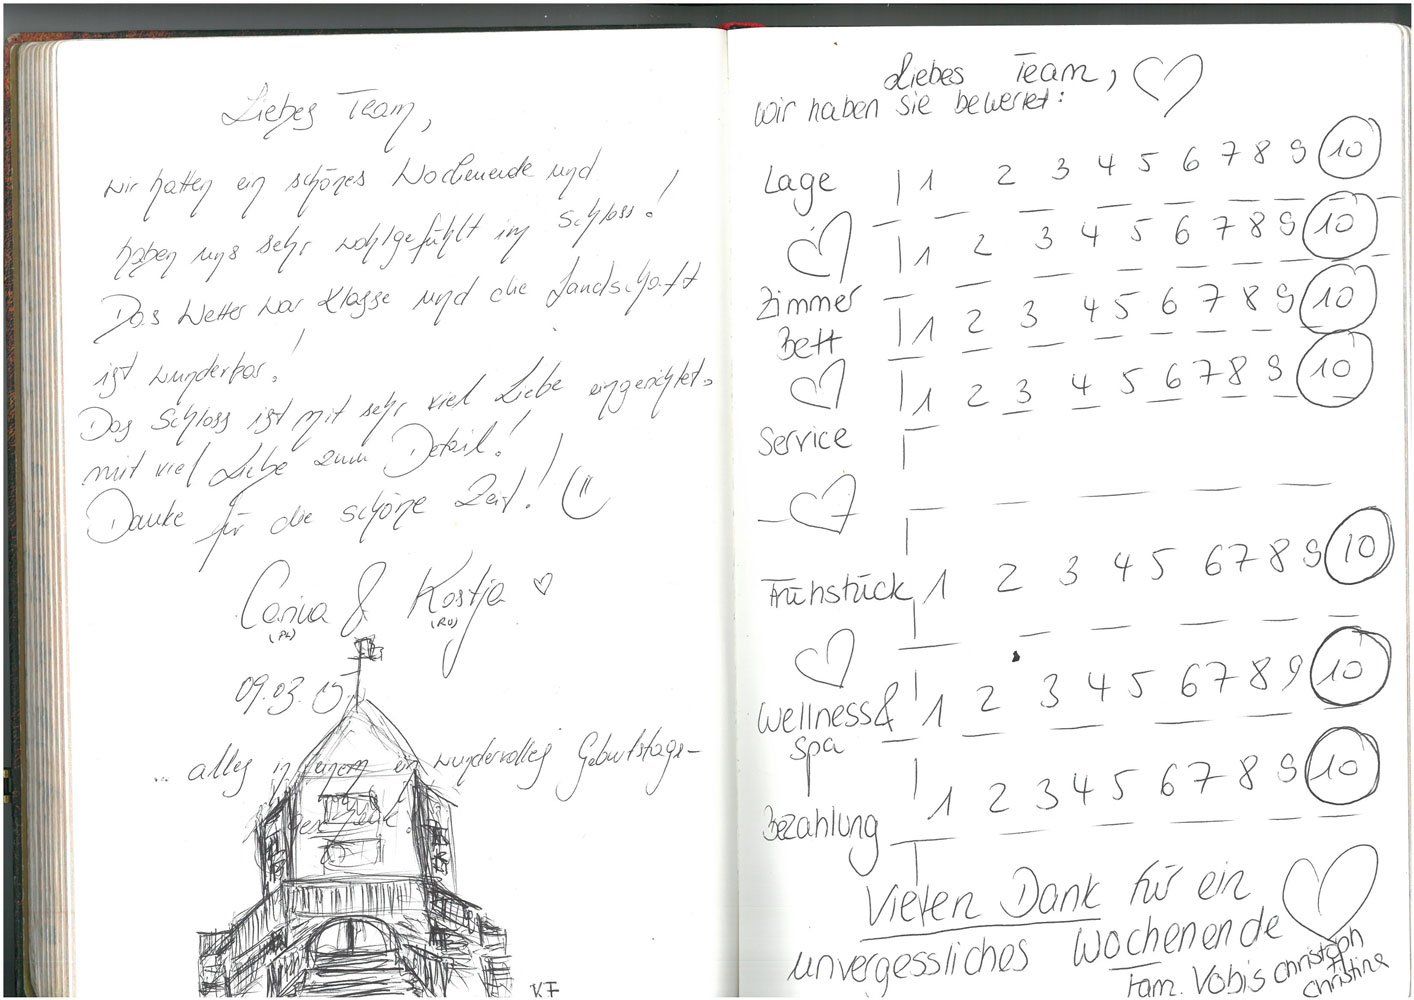 Liebes Team,
wir hatten ein schönes Wochenende und
haben uns sehr wohlgefühlt im Schloss!
Das Wetter war Klasse und die Landschaft
ist wunderbar!
Das Schloss ist mit sehr viel Liebe eingerichtet.
mit viel Liebe zum Detail!
Danke für die schöne Zeit!
& Kostja
(PL) (RU)
09.03.15
... alles in einem ein wundervolles Geburtstags-
KF
Liebes Team,
wir haben sie bewertet:
Lage 1 2 3 4 5 6 7 8 9 10
1 2 3 4 5 6 7 8 9 10
Zimmer
Bett 1 2 3 4 5 6 7 8 9 10
1 2 3 4 5 6 7 8 9 10
Service
Frühstück 1 2 3 4 5 6 7 8 9 10
Wellness & 1 2 3 4 5 6 7 8 9 10
Spa
Bezahlung 1 2 3 4 5 6 7 8 9 10
Vielen Dank für ein
unvergessliches Wochenende
Fam. Vobis Christoph
Christina